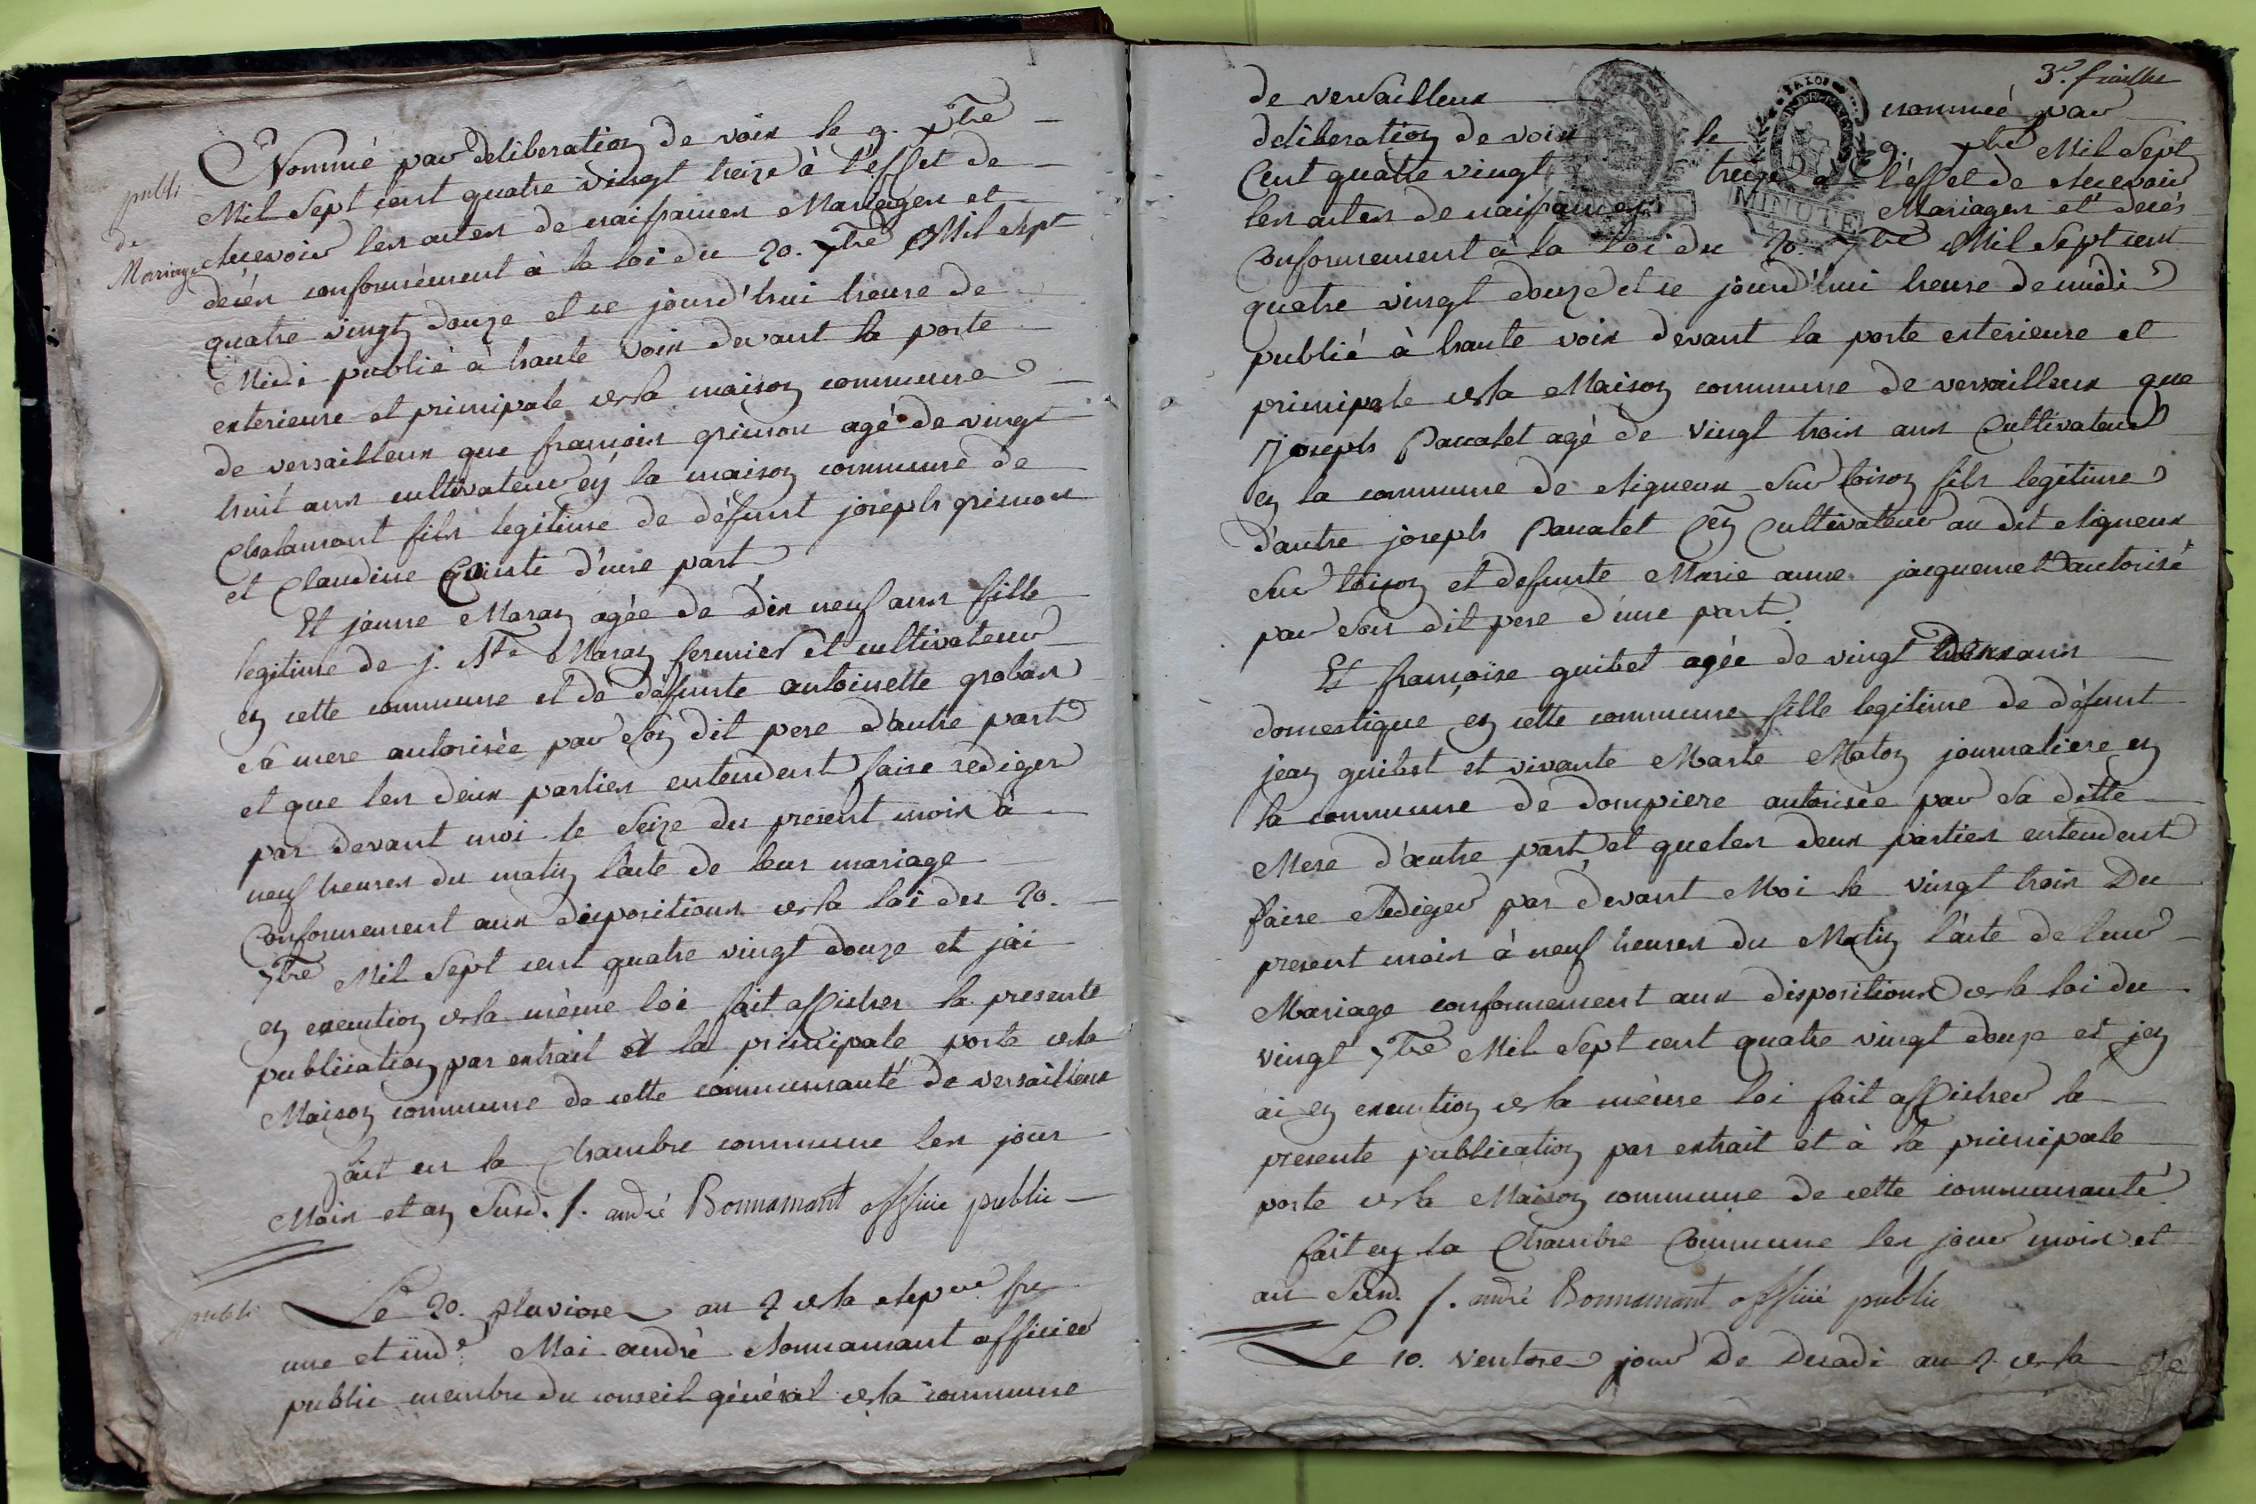 Nommé par deliberation de voix le 9. xbre
publi
de
Mariage
Mil Sept cent quatre vingt treize à l'effet de
recevoir les actes de naissances Mariages et
decés conformément à la loi du 20. 7bre Mil Sept
quatre vingt douze et ce jourd'hui heure de
Midi publié à haute voix devant la porte
exterieure et principale de la maison commune
de versailleux que françois grimon agé de vingt
huit ans cultivateur en la maison commune de
Chalamont fils legitime de défunt joseph grimon
et Claudine d'une part
Et jeanne Maran agée de dix neuf ans fille
legitime de j. Bte Maran fermier et cultivateur
en cette commune et de défunte antoinette groban
sa mere autorisée par son dit pere d'autre part
et que les deux parties entendent faire rediger
par devant moi le Seize du present mois à
neuf heures du matin l'acte de leur mariage
Conformement aux dispositions de la loi des 20.
7bre Mil Sept cent quatre vingt douze et j'ai
en execution de la même loi fait afficher la presente
publication par extrait et à la principale porte de la
Maison commune de cette communauté de versailleux
fait en la Chambre commune les jour
Mois et an Susd. f. andré Bonnamant officié public
publi
Le 20. pluviose an 2 de la repue. fr.
une et ind.e Moi andré bonnamant officier
public membre du conseil général de la commune
3e. feuillet
de versailleux nommé par
deliberation de voix le 9. xbre Mil Sept
Cent quatre vingt treize a l'effet de recevoir
les actes de naissances Mariages et decés
MINUTE
Conformement à la Loi du 20. 7bre Mil Sept cent
quatre vingt douze et ce jourd'hui heure de midi
publié à haute voix devant la porte exterieure et
principale de la Maison commune de versailleux que
joseph Pacalet agé de vingt trois ans Cultivateur
en la commune de rigneux Sur loison fils legitime
d'autre joseph Pacalet Cen Cultivateur au dit rigneux
Sur loison et defunte Marie anne jacquemet autorisé
par son dit pere d'une part.
Et françoise guibet agée de vingt ans
domestique en cette commune fille legitime de défunt
jean guibet et vivante Marte Maton journaliere en
la commune de dompiere autorisée par Sa ditte
Mere d'autre part et que les deux parties entendent
faire rediger par devant Moi le vingt trois Du
present mois à neuf heures du Matin l'acte de leur
Mariage conformement aux dispositions de la loi du
vingt 7bre Mil Sept cent quatre vingt douze et j'en
ai en execution de la même loi fait afficher la
presente publication par extrait et à la principale
porte de la Maison commune de cette communauté
fait en la Chambre Commune les jour mois et
an Susd. f. andré Bonnamant officié public
Le 10. ventose jour de Decadi an 2 de la